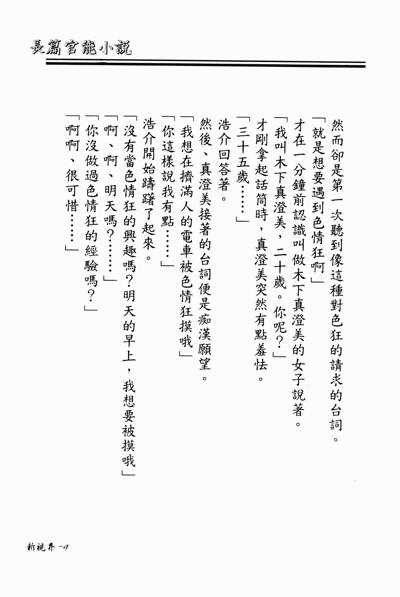 長篇官能小說
然而卻是第一次聽到像這種對色狂的請求的台詞。
「就是想要遇到色情狂啊」
才在一分鐘前認識叫做木下真澄美的女子說著。
「我叫木下真澄美，二十歲。你呢？」
才剛拿起話筒時，真澄美突然有點羞怯。
「三十五歲……」
浩介回答著。
然後、真澄美接著的台詞便是痴漢願望。
「我想在擠滿人的電車被色情狂摸哦」
「你這樣說我有點……」
浩介開始躊躇了起來。
「沒有當色情狂的興趣嗎？明天的早上，我想要被摸哦」
「啊、啊、明天嗎？……」
「你沒做過色情狂的經驗嗎？」
「啊啊、很可惜……」
新視界